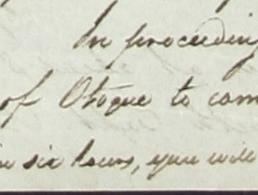 In proceeding
of Otoque to com
six hours, you will